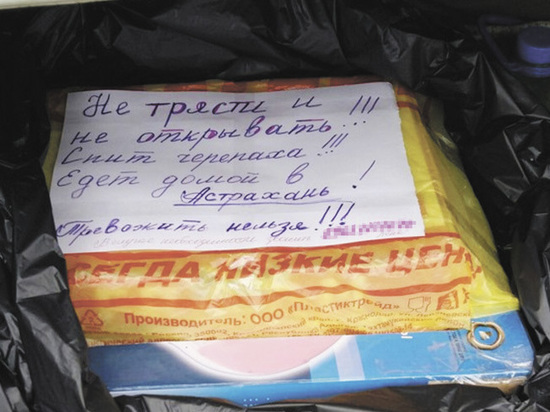 Не трясти и !!!
не открывать!!!
Спит черепаха!!!
Едет домой в !
Астрахань.
Тревожить нельзя!!!
СЕГДА НИЗКИЕ ЦЕН
Производитель: ООО «Пластиктрейд»